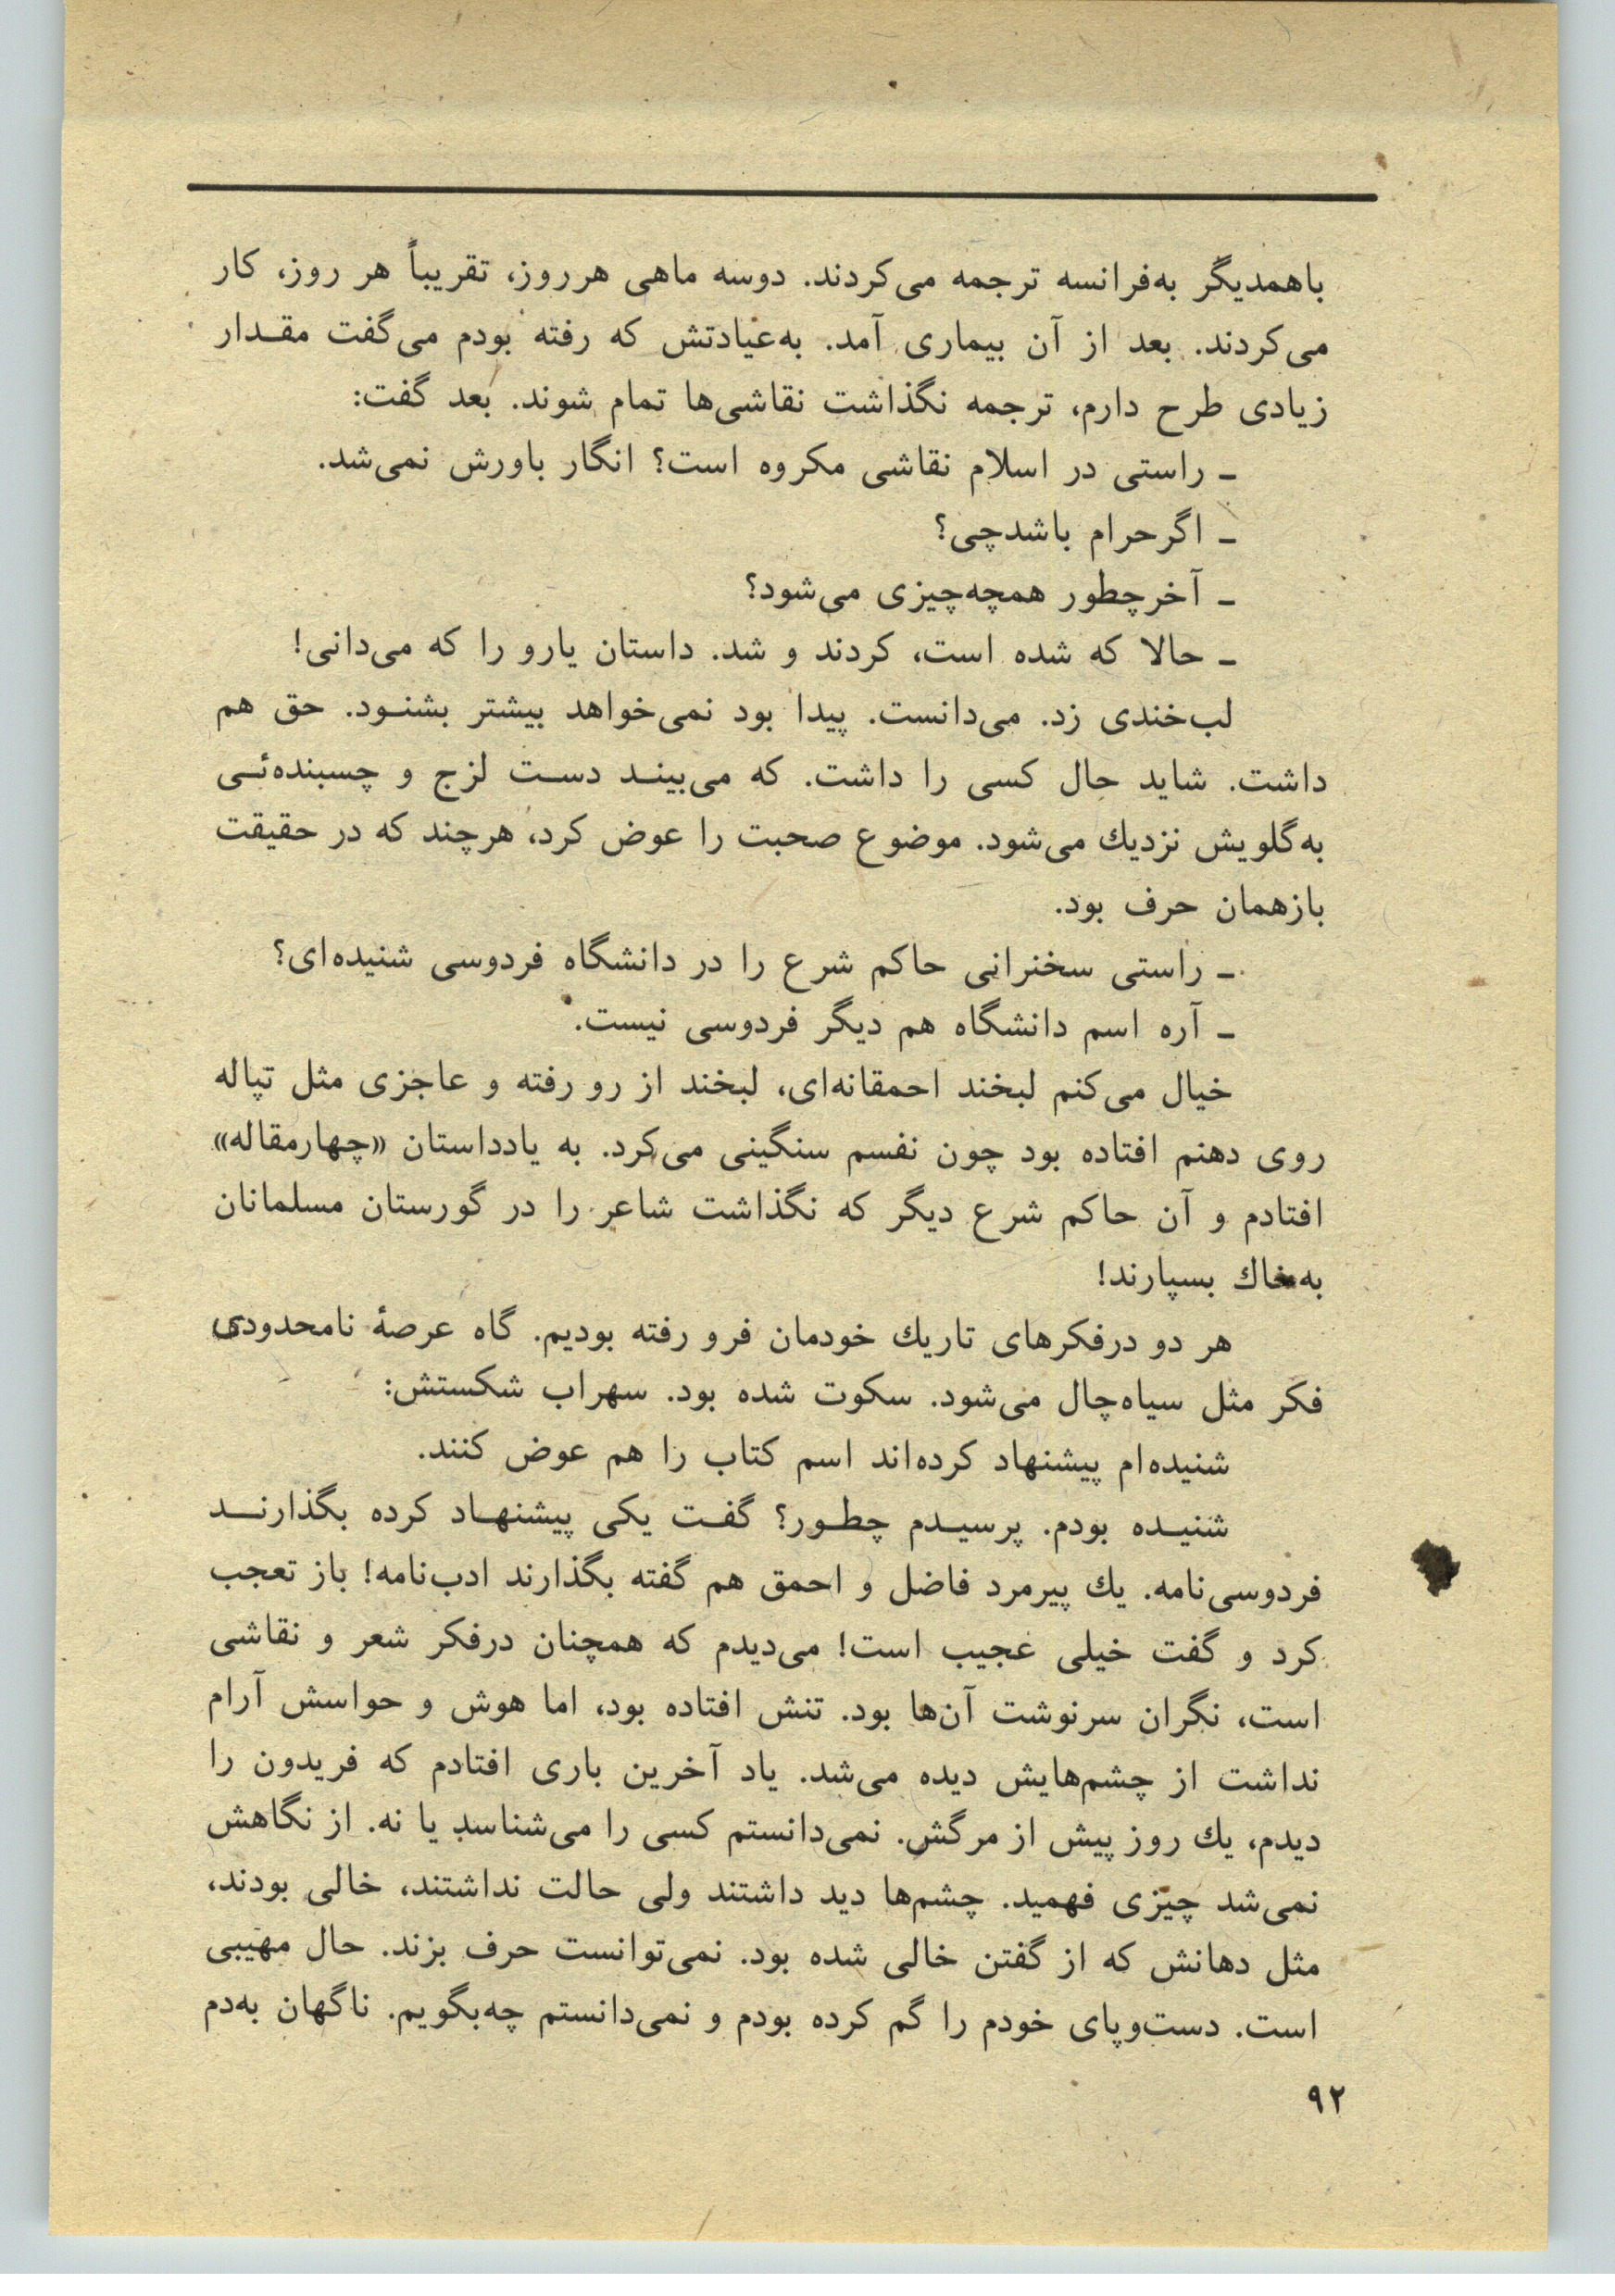 باهمدیگر به‌فرانسه ترجمه می‌کردند. دوسه ماهی هرروز، تقریباً هر روز، کار
می‌کردند. بعد از آن بیماری آمد. به‌عیادتش که رفته بودم می‌گفت مقـدار
زیادی طرح دارم، ترجمه نگذاشت نقاشی‌ها تمام شوند. بعد گفت:
ـ راستی در اسلام نقاشی مکروه است؟ انگار باورش نمی‌شد.
ـ اگرحرام باشدچی؟
ـ آخرچطور همچه‌چیزی می‌شود؟
ـ حالا که شده است، کردند و شد. داستان یارو را که می‌دانی!
لب‌خندی زد. می‌دانست. پیدا بود نمی‌خواهد بیشتر بشنـود. حق هم
داشت. شاید حال کسی را داشت. که می‌بینـد دسـت لزج و چسبنده‌ئـی
به‌گلویش نزدیك می‌شود. موضوع صحبت را عوض کرد، هرچند که در حقیقت
بازهمان حرف بود.
ـ راستی سخنرانی حاکم شرع را در دانشگاه فردوسی شنیده‌ای؟
ـ آره اسم دانشگاه هم دیگر فردوسی نیست.
خیال می‌کنم لبخند احمقانه‌ای، لبخند از رو رفته و عاجزی مثل تپاله
روی دهنم افتاده بود چون نفسم سنگینی می‌کرد. به یادداستان «چهارمقاله»
افتادم و آن حاکم شرع دیگر که نگذاشت شاعر را در گورستان مسلمانان
به‌خاك بسپارند!
هر دو درفکرهای تاریك خودمان فرو رفته بودیم. گاه عرصهٔ نامحدودی
فکر مثل سیاه‌چال می‌شود. سکوت شده بود. سهراب شکستش:
شنیده‌ام پیشنهاد کرده‌اند اسم کتاب را هم عوض کنند.
شنیـده بودم. پرسیـدم چطـور؟ گفـت یکی پیشنهـاد کرده بگذارنــد
فردوسی‌نامه. یك پیرمرد فاضل و احمق هم گفته بگذارند ادب‌نامه! باز تعجب
کرد و گفت خیلی عجیب است! می‌دیدم که همچنان درفکر شعر و نقاشی
است، نگران سرنوشت آن‌ها بود. تنش افتاده بود، اما هوش و حواسش آرام
نداشت از چشم‌هایش دیده می‌شد. یاد آخرین باری افتادم که فریدون را
دیدم، یك روز پیش از مرگش. نمی‌دانستم کسی را می‌شناسد یا نه. از نگاهش
نمی‌شد چیزی فهمید. چشم‌ها دید داشتند ولی حالت نداشتند، خالی بودند،
مثل دهانش که از گفتن خالی شده بود. نمی‌توانست حرف بزند. حال مهیبی
است. دست‌وپای خودم را گم کرده بودم و نمی‌دانستم چه‌بگویم. ناگهان به‌دم
۹۲